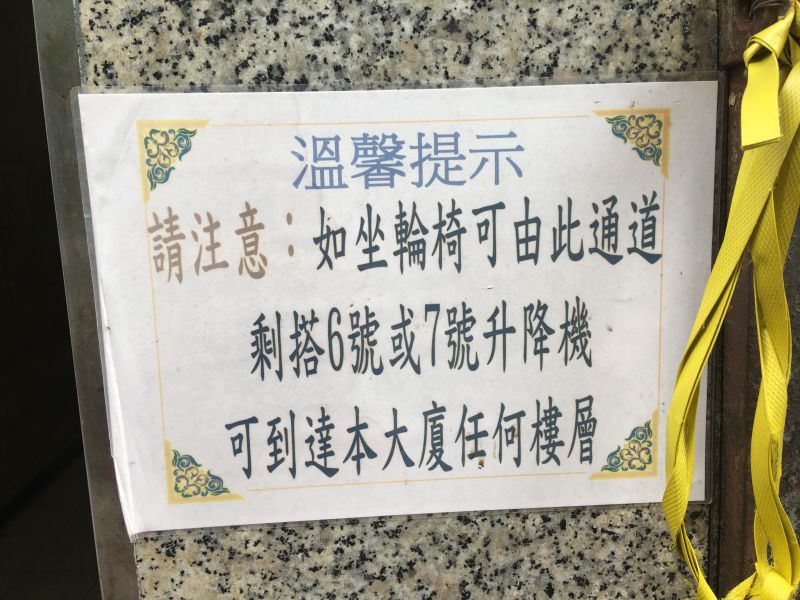 溫馨提示
請注意：如坐輪椅可由此通道
剩搭6號或7號升降機
可到達本大廈任何樓層